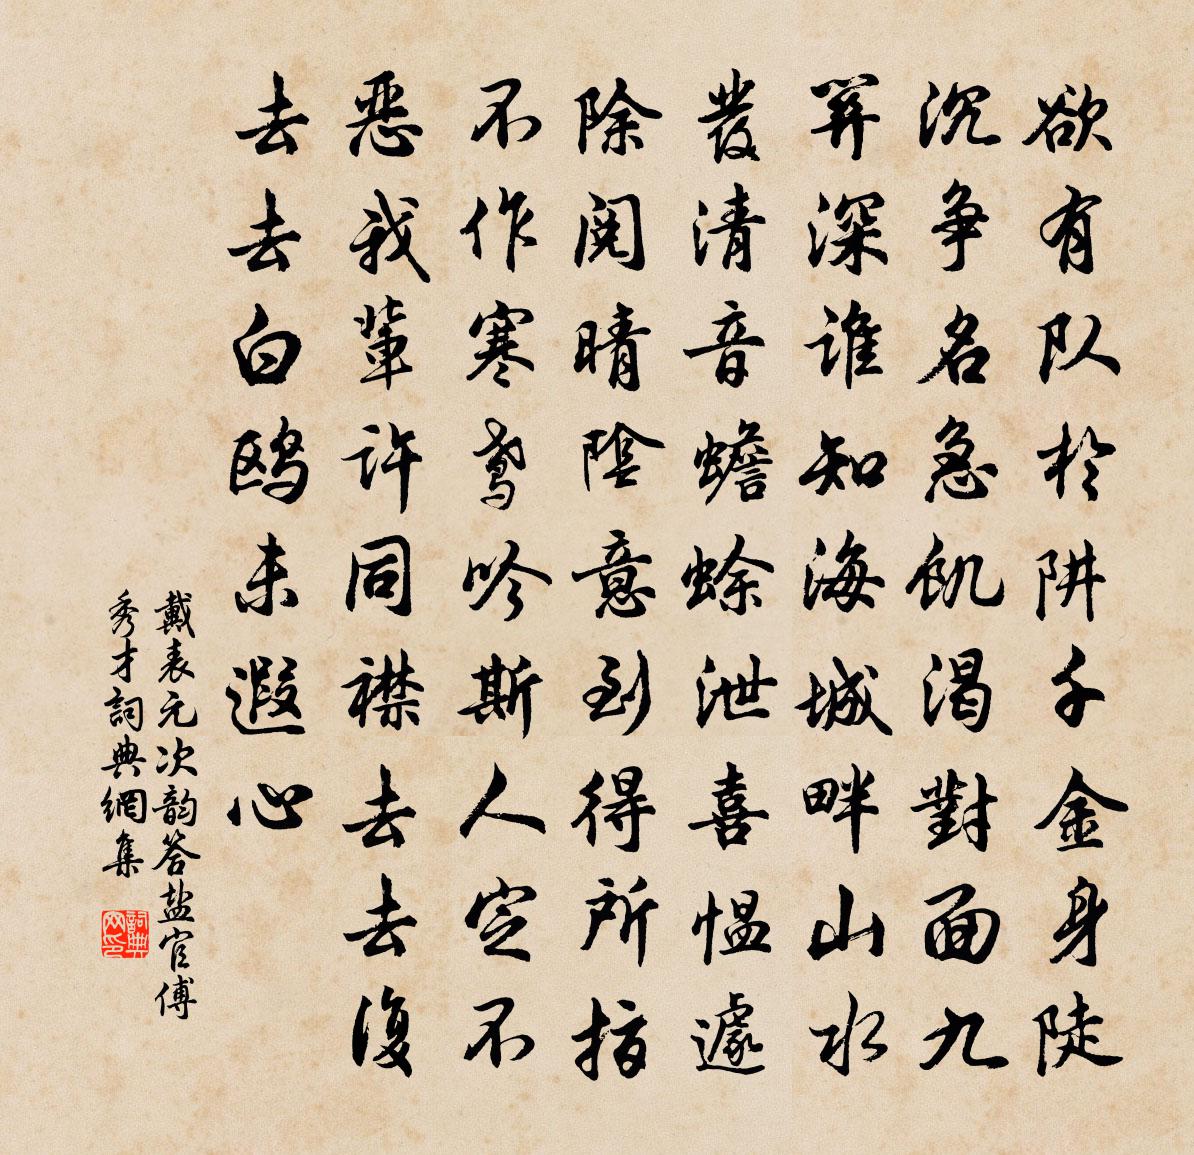 欲有队於阱千金身陡
沉争名急飢渴對面九
深誰知海城畔山水
發清音蟾蜍泄喜愠遽
除閱晴陰意到得所指
不作寒鸢吟斯人定不
恶我輩許同襟去去復
去去白鸥未遐心
戴表元次韵答盐官傅
秀才詞典網集
詞典
网印